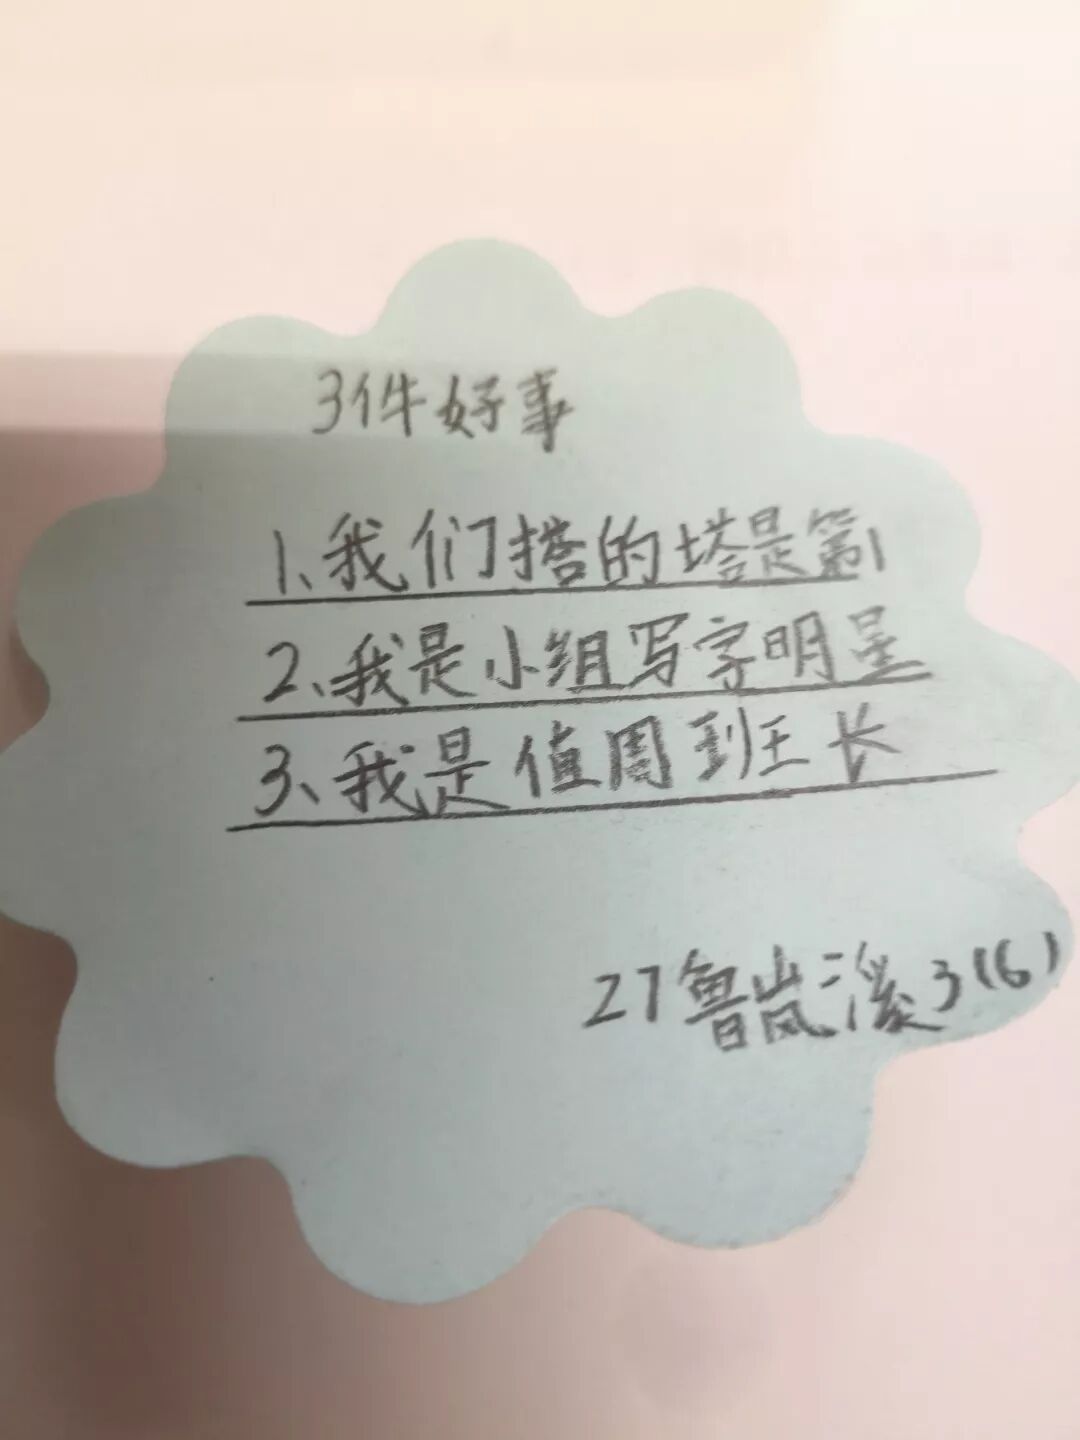 3件好事
1、我们搭的塔是第1
2、我是小组写字明星
3、我是值周班长
27鲁岚溪3(6)